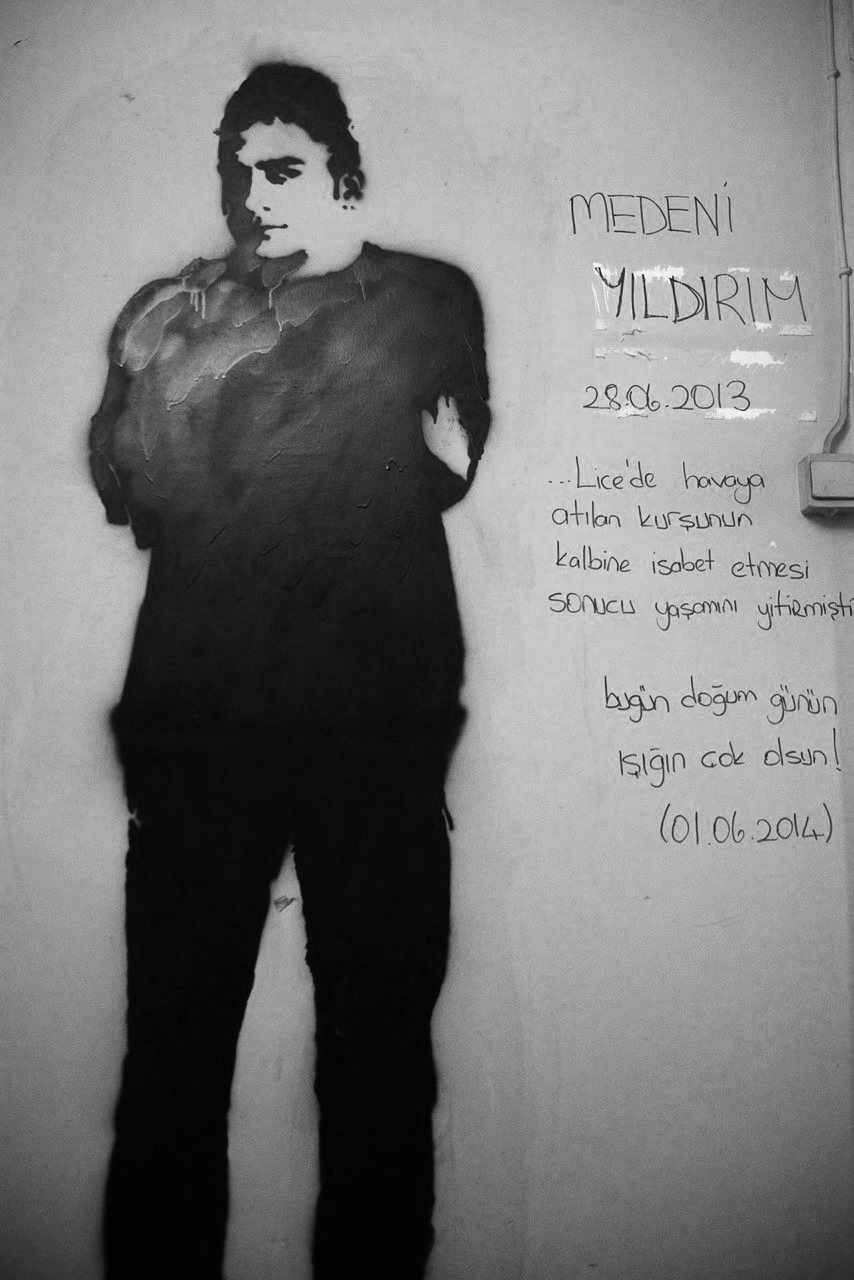 MEDENİ
YILDIRIM
28.06.2013
...Lice'de havaya
atılan kurşunun
kalbine isabet etmesi
sonucu yaşamını yitirmişti
bugün doğum günün
ışığın çok olsun!
(01.06.2014)